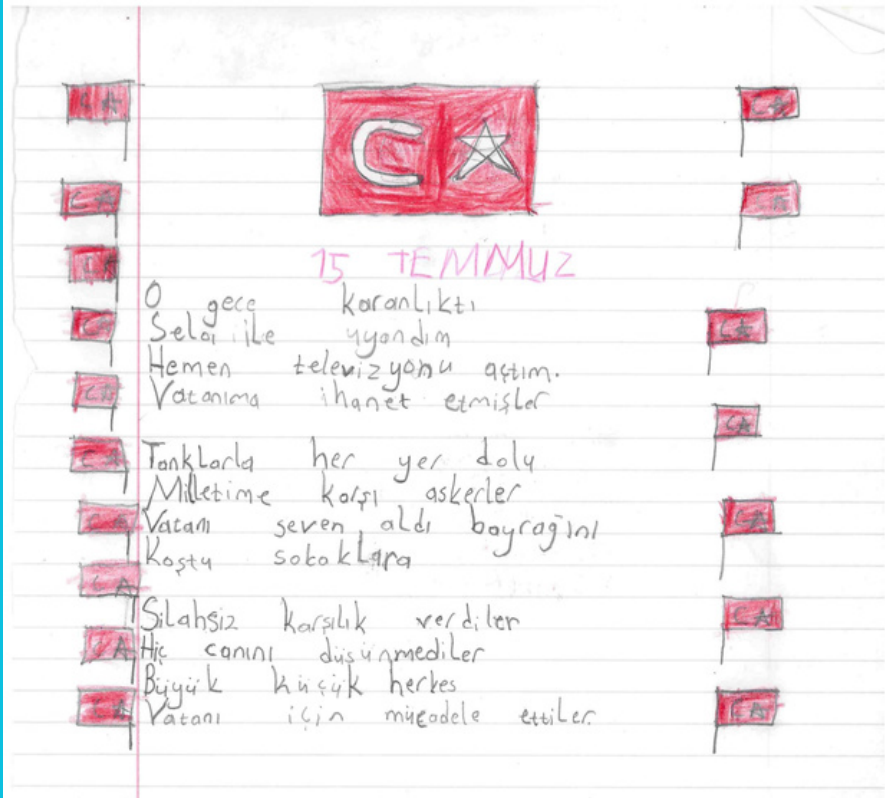 15 TEMMUZ
O gece karanlıktı
Sela ile uyandım
Hemen televizyonu açtım.
Vatanıma ihanet etmişler
Tanklarla her yer dolu
Milletime karşı askerler
Vatanı seven aldı bayrağını
Koştu sokaklara
Silahsız karşılık verdiler
Hiç canını düşünmediler
Büyük küçük herkes
Vatanı için mücadele ettiler.